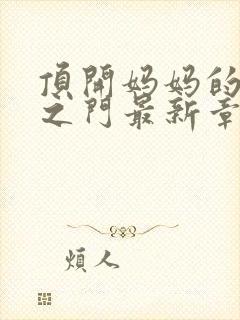 頂開妈妈的
之門最新章
煩人